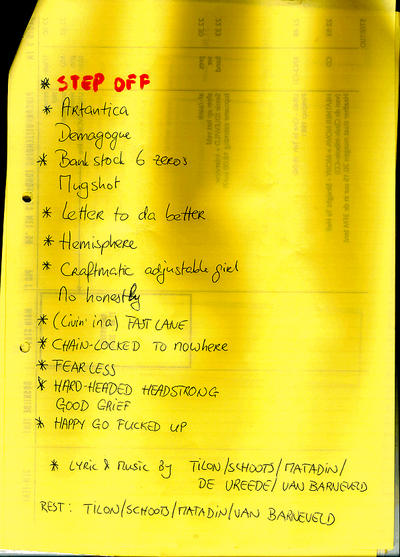 * STEP OFF
* Artantica
Demagogue
* Bank stock 6 zeros
Mugshot
* Letter to da better
* Hemisphere
* Craftmatic adjustable girl
No honestly
* (Livin' in a) FAST LANE
* CHAIN-LOCKED TO nowhere
* FEARLESS
* HARD-HEADED HEADSTRONG
GOOD GRIEF
* HAPPY GO FUCKED UP
* LYRIC & MUSIC BY TILON/SCHOOTS/MATADIN/
DE VREEDE/VAN BARNEVELD
REST: TILON/SCHOOTS/MATADIN/VAN BARNEVELD